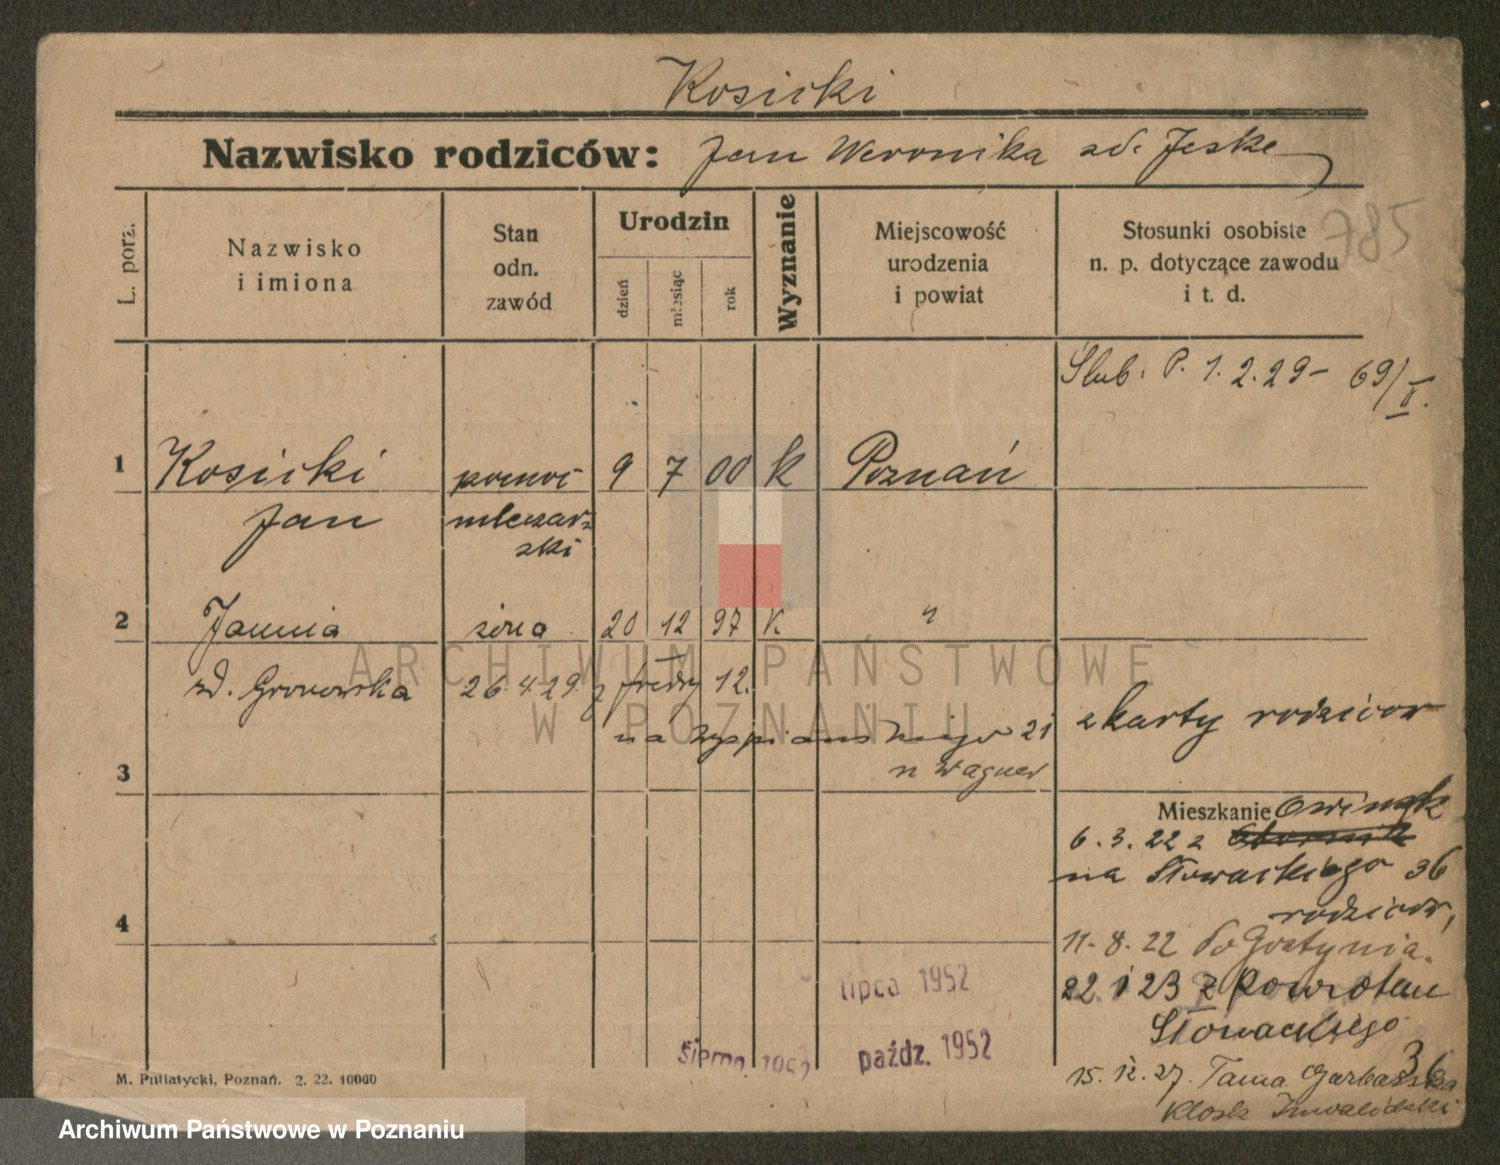 Kosicki
Nazwisko rodziców: Jan Weronika zd. Jeske
785
L. porz.
Nazwisko
i imiona
Stan
odn.
zawód
Urodzin
dzień
miesiąc
rok
Wyznanie
Miejscowość
urodzenia
i powiat
Stosunki osobiste
n. p. dotyczące zawodu
i t. d.
Ślub. P. 1. 2. 29 - 69/II.
1 Kosicki pomoc 9 7 00 k Poznań
Jan mleczar
ski
2 Janina żona 20 12 97 K. "
zd. Gronowska 26.4.29 z Fredry 12.
na Wyspiańskiego 21
n Wagner
z karty rodziców
3
Mieszkanie Owinsk
6. 3. 22 z
na Słowackiego 36
rodziców,
4
11-8. 22 do Gostynia.
22 1 23 z powrotem
Słowackiego
36
15. 12. 27. Tama Garbarska
Kiosk Inwalidzki
lipca 1952
sierpn. 1952
paźdz. 1952
M. Putiatycki, Poznań. 2. 22. 10000
ARCHIWUM PAŃSTWOWE
W POZNANIU
Archiwum Państwowe w Poznaniu